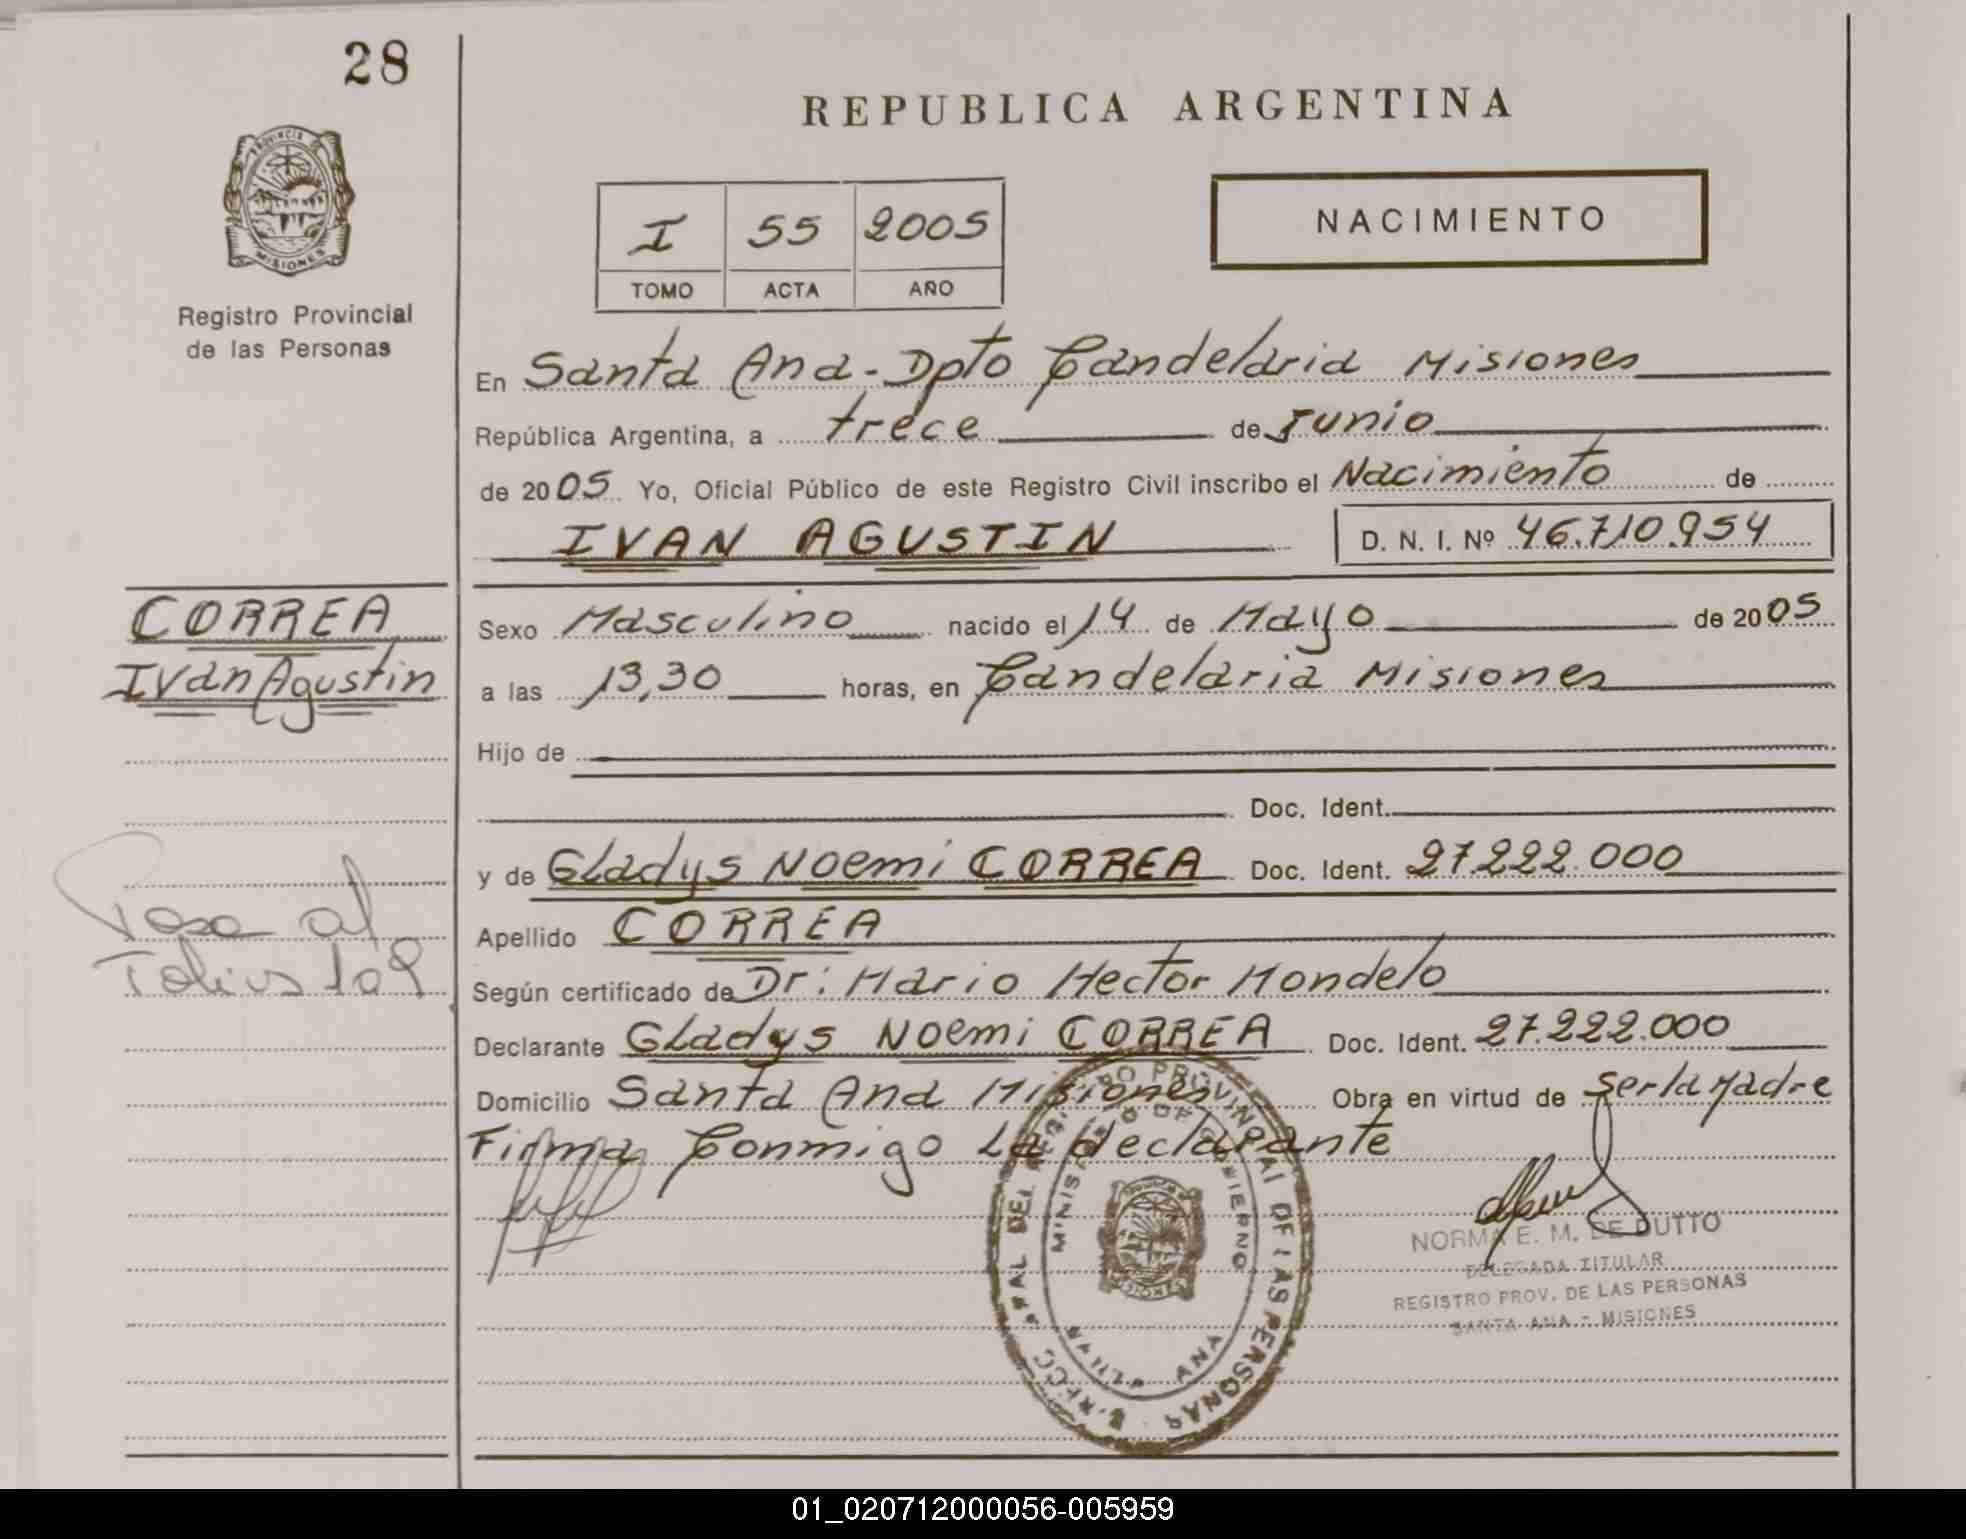 28
REPUBLICA ARGENTINA
PROVINCIA DE
MISIONES
Registro Provincial
de las Personas
I 55 2005
TOMO ACTA AÑO
NACIMIENTO
En Santa Ana - Dpto Candelaria Misiones
República Argentina, a trece de Junio
de 2005 Yo, Oficial Público de este Registro Civil inscribo el Nacimiento de
IVAN AGUSTIN D. N. I. Nº 46.710.954
CORREA
Ivan Agustin
Sexo Masculino nacido el 14 de Mayo de 2005
a las 13,30 horas, en Candelaria Misiones
Hijo de
Doc. Ident.
y de Gladys Noemi CORREA Doc. Ident. 27.222.000
Apellido CORREA
Pasa al
Según certificado de Dr: Mario Hector Mondelo
Declarante Gladys Noemi CORREA Doc. Ident. 27.222.000
Domicilio Santa Ana Misiones Obra en virtud de ser la Madre
Firma Conmigo La declarante
NORMA E. M. DE DUTTO
DELEGADA TITULAR
REGISTRO PROV. DE LAS PERSONAS
SANTA ANA - MISIONES
PROVINCIAL DE LAS PERSONAS
ANA
01_020712000056-005959